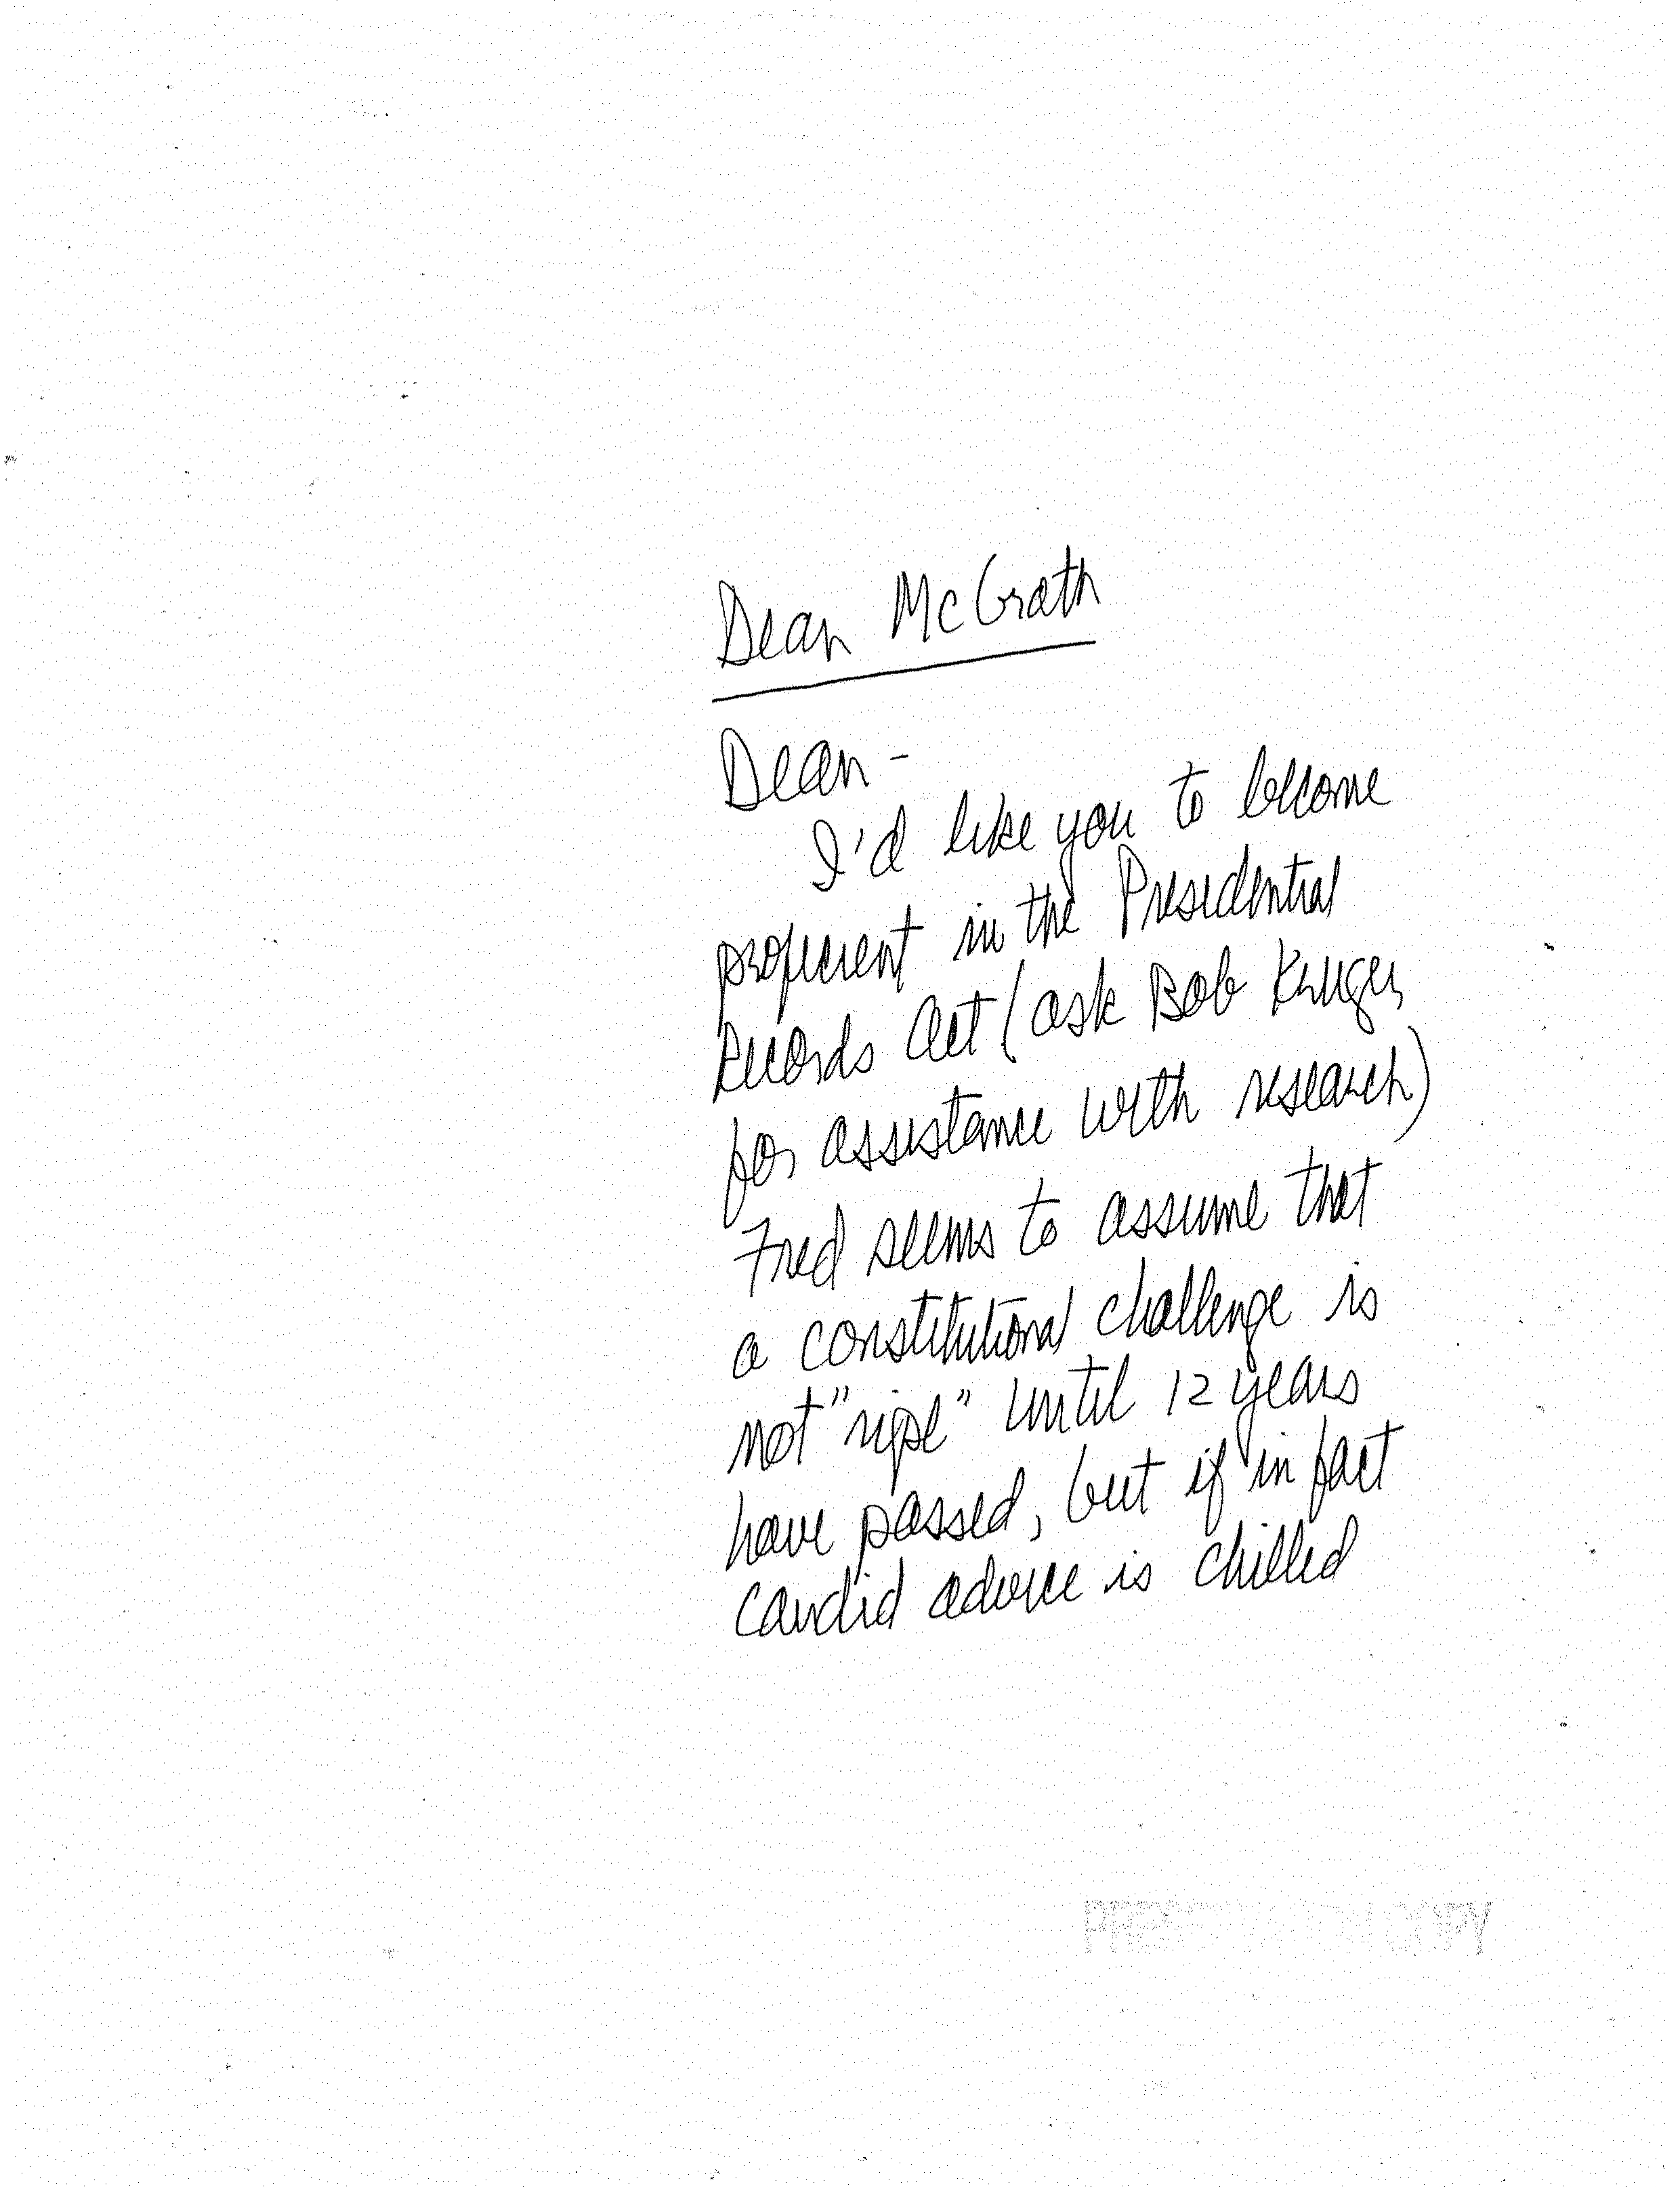 Dean McGrath
Dean -
I'd like you to become
proficient in the Presidential
Records Act (ask Bob Kruger
for assistance with research)
Fred seems to assume that
a constitutional challenge is
not "ripe" until 12 years
have passed, but if in fact
candid advice is chilled
COPY